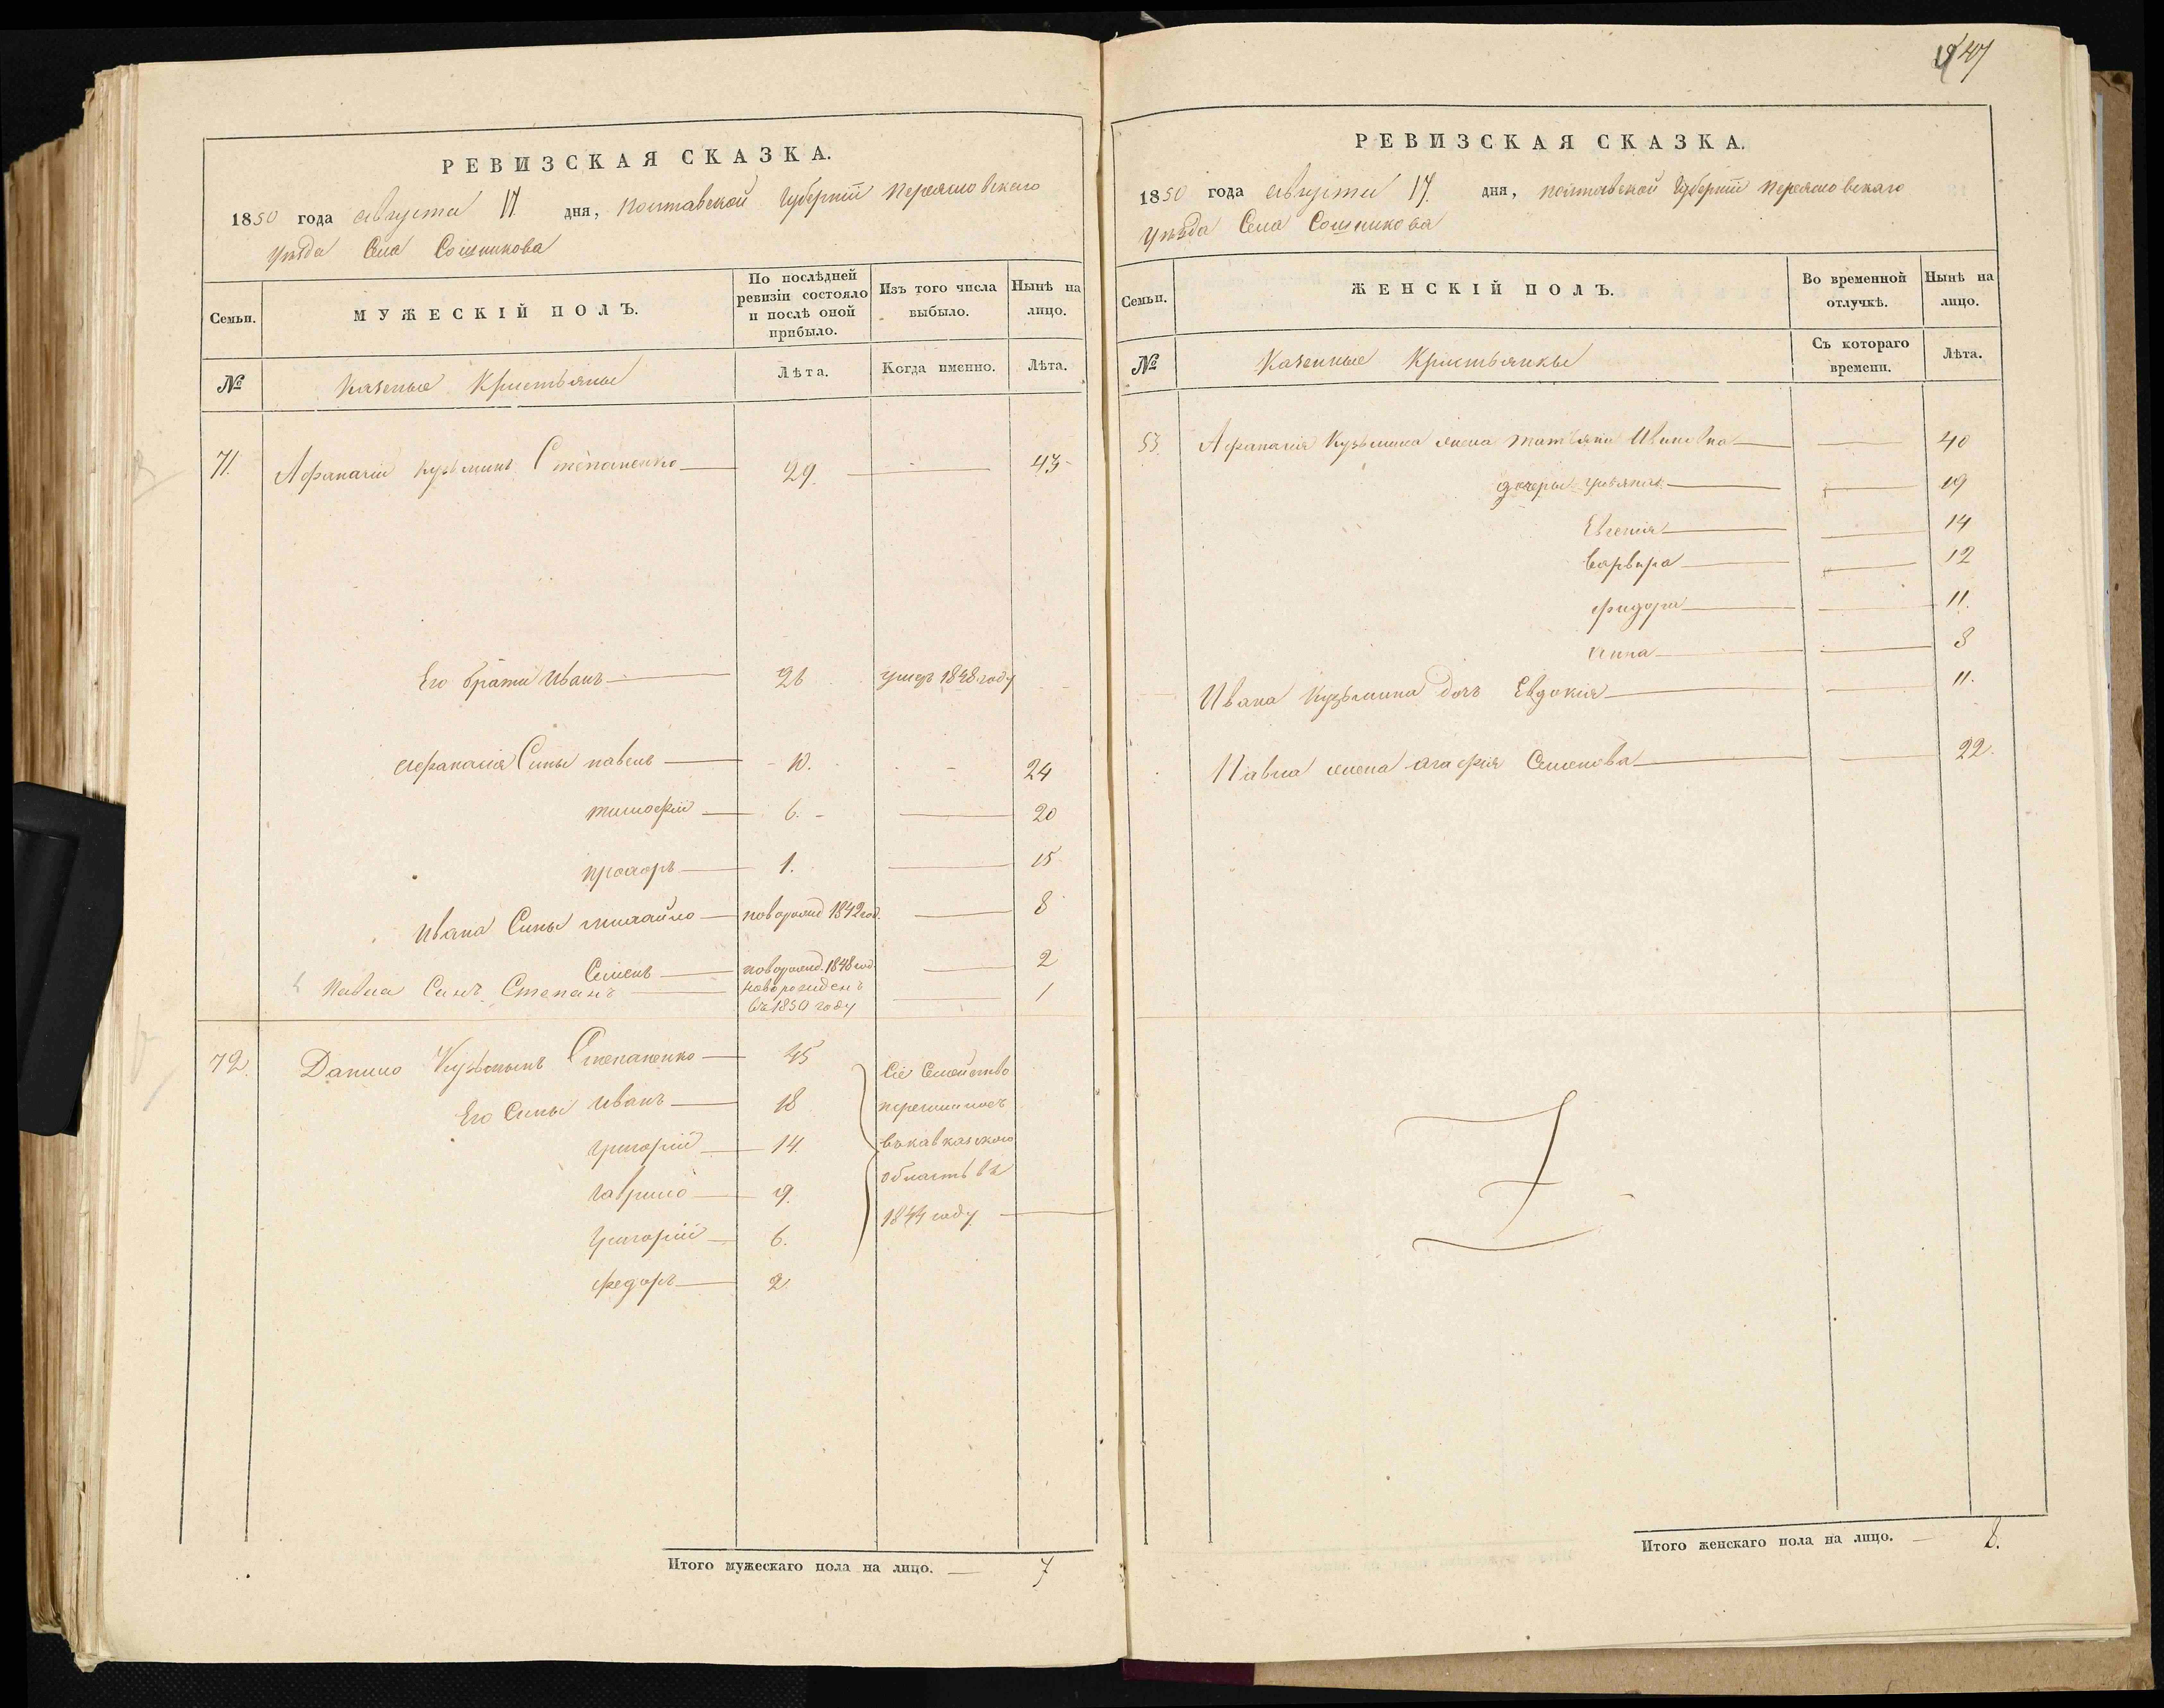 1847
РЕВИЗСКАЯ СКАЗКА.
1850 года августа 17 дня, полтавской Губерніи переяславскаго
уѣзда Села Сошникова
Семьи.
МУЖЕСКІЙ ПОЛЪ.
По послѣдней ревизіи состояло и послѣ оной прибыло.
Изъ того числа выбыло.
Нынѣ на лицо.
№
казеные Кристьяны
Лѣта.
Когда именно.
Лѣта.
71. Афанасій кузьминъ Степаненко 29. 43
Его братъ Иванъ 26 умеръ 1848 году
Афанасія Сины павелъ 10. 24
тимофій 6. 20
прохоръ 1. 15
Ивана Сины михайло новорожд 1842 год. 8
Семенъ новорожд. 1848 год. 2
Павла Синъ Степанъ новорожденъ въ 1850 году 1
72. Данило Кузьминъ Степаненко 45 Сіе Семейство
Его Сины Иванъ 18 перечислилось
григорій 14. въ кавказскою
гаврило 9. область въ
григорій 6. 1844 году
федоръ 2
Итого мужескаго пола на лицо. 7
РЕВИЗСКАЯ СКАЗКА.
1850 года августа 17. дня, полтавской Губерніи переяславскаго
уѣзда Села Сошникова
Семьи.
ЖЕНСКІЙ ПОЛЪ.
Во временной отлучкѣ.
Нынѣ на лицо.
№
Казенные Кристьянкы
Съ котораго времени.
Лѣта.
53. Афанасія Кузьмина жена татьяна Ивановна 40
дочеры 19
Евгенія 14
варвара 12
фидора 11.
Анна 8
Ивана Кузьмина дочь Евдокія 11.
Павла жена агафія Семенова 22.
Итого женскаго пола на лицо. 8.